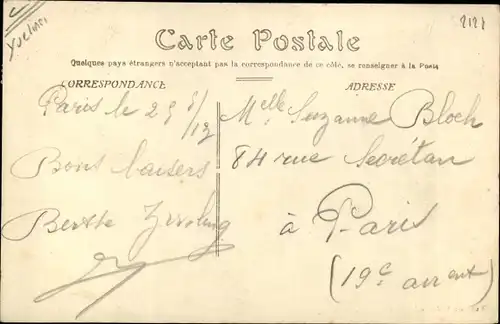 Yvelines
2121
Carte Postale
Quelques pays étrangers n'acceptant pas la correspondance de ce côté, se renseigner à la Poste
CORRESPONDANCE
Paris le 25
Bons baisers
Berthe
ADRESSE
Melle Suzanne Bloch
84 rue Secrétan
à Paris
(19e arrent)